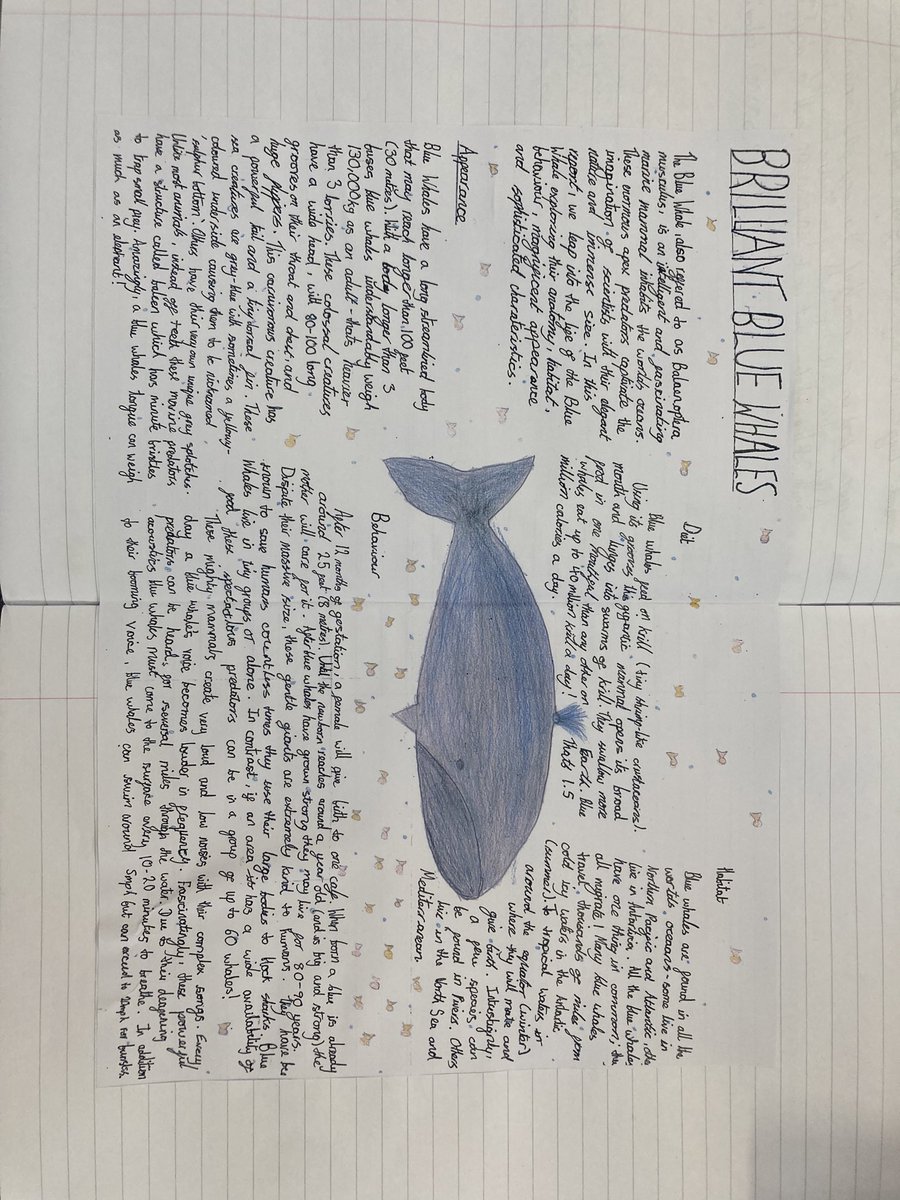 BRILLIANT BLUE WHALES
The Blue Whale, also reffered to as Balaenoptera
musculus, is an intelligent and fascinating
marine mammal inhabits the worlds oceans.
These enormous apex predators captivate the
imagination of scientists with their elegant
nature and immense size. In this
report we leap into the life of the Blue
Whale exploring their anatomy, habitat,
behaviour, magnificent appearance
and sophisticated charateristics.
Appearance
Blue Whales have a long streamlined body
that may reach longer than 100 feet
(30 metres). With a body longer than 3
buses, blue whales understandably weigh
130,000kg as an adult - thats heavier
than 3 lorries. These colossal creatures
have a wide head, with 80-100 long
grooves on their throat and chest, and
huge flippers. This carnivorous creature has
a powerful tail and a tiny dorsal fin. These
sea creatures are gray-blue with sometimes a yellowy-
coloured underside causing them to be nicknamed
'sulphur bottom'. Others have their very own unique gray splotches.
Unlike most animals, instead off teeth these marine predators
have a structure called baleen which has minute bristles
to trap small prey. Amazingly, a blue whales tongue can weigh
as much as an elephant!
Diet
Blue whales feed on krill (tiny shrimp-like crustaceans).
Using its grooves the gigantic mammal opens its broad
mouth and lunges into swarms of krill. They swallow more
food in one handfull than any other on Earth. Blue
whales eat up to 40 million krill a day! Thats 1.5
million calories a day.
Habitat
Blue whales are found in all the
worlds oceans - some live in
Northern Pacific and Atlantic,
live in Antartica. All the blue whales
have one thing in commorn; the
all migrate! Many blue whales
travel thousands of miles from
cold icy waters in the Arlatic
(summer) to tropical waters in
around the equator (winter)
where they will mate and
give birth. Intrestingly,
a few species can
be found in Rivers. Others
live in the North Sea and
Mediterranean.
Behaviour
After 12 months of gestation, a female will give birth to one calf. When born a blue is already
around 25 feet (8 metres). Until the newborn reaches around a year old (and is big and strong) the
mother will care for it. After blue whales have grown strong they may live for 80-90 years.
Despite their massive size, these gentle giants are extremely kind to humans. They have be
known to save humans countless times they use their large bodies to block sharks. Blue
Whales live in tiny groups or alone. In contrast, if an area has a wide availability of
food these spectacular predators can be in a group of up to 60 whales!
These mighty mammals create very loud and low noises with their complex songs. Every
day a blue whale's voice becomes louder in frequency. Fascinatingly, these powerful
predators can be heard, for several miles through the water. Due to their deafening
acoustics blue whales must come to the surface every 10-20 minutes to breathe. In addition
to their booming voice, blue whales can swim around 5mph but can exceed to 20mph for bursts.